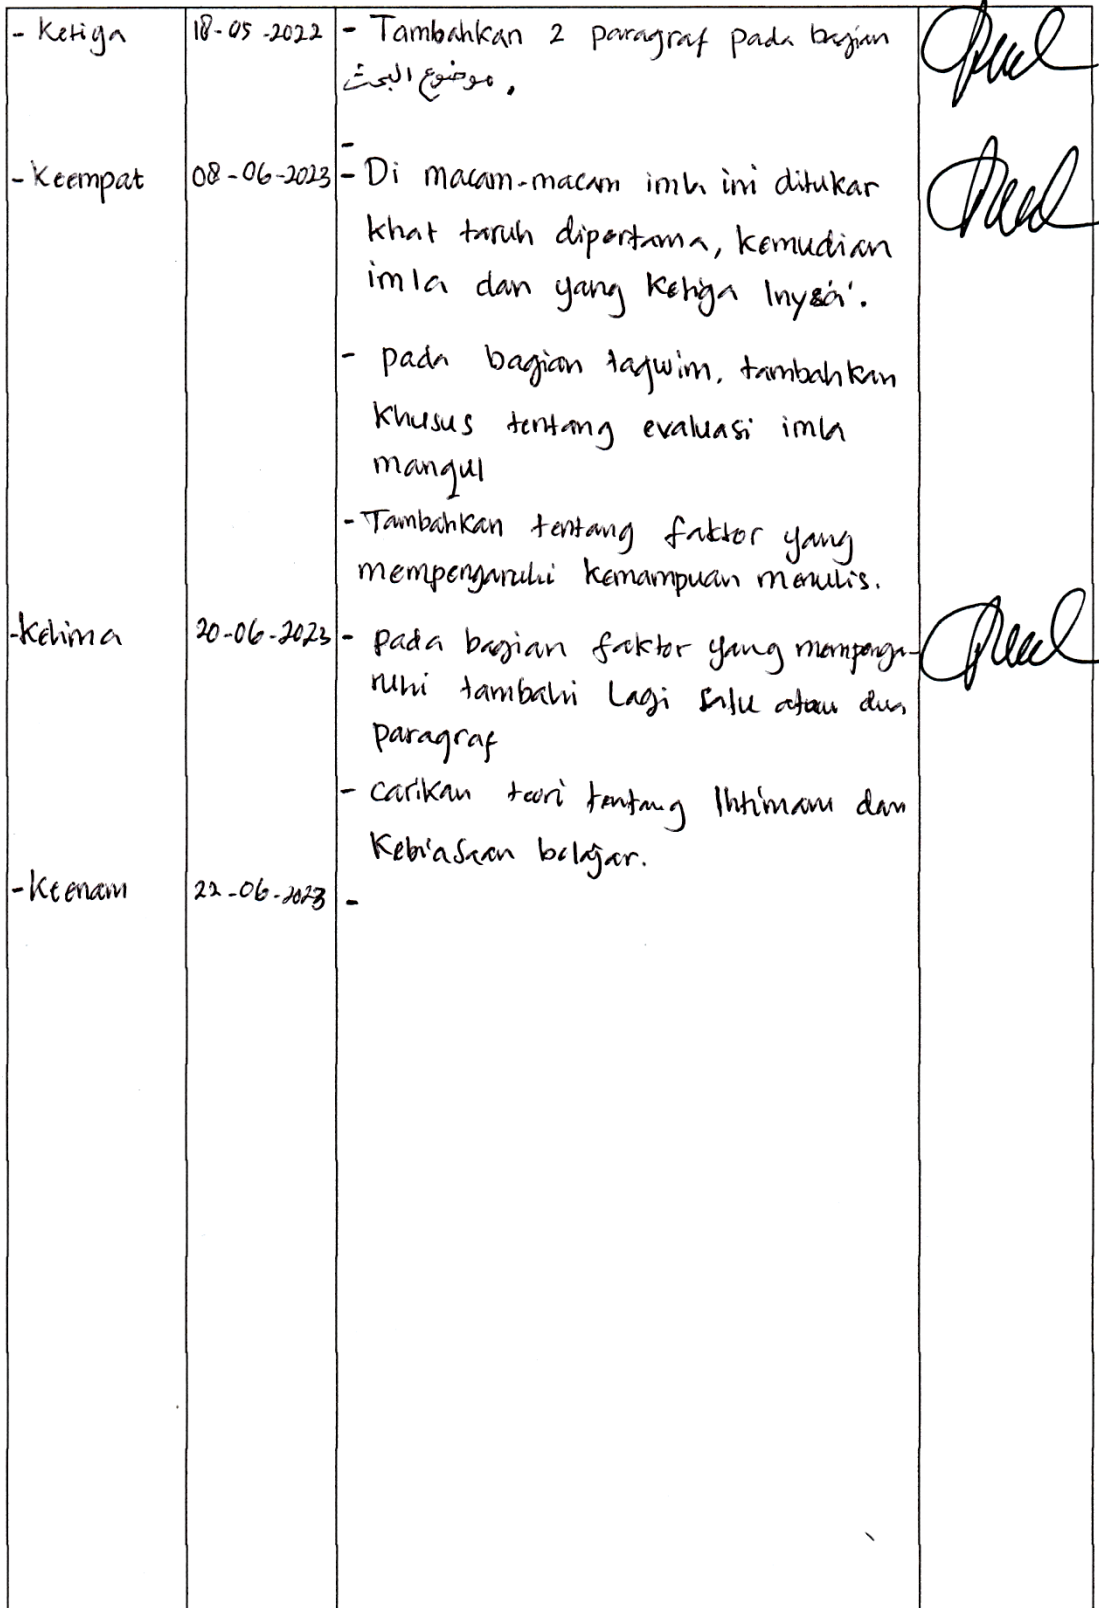 - Ketiga 18-05-2022 - Tambahkan 2 paragraf pada bagian
موضوع البحث.
-
- Keempat 08-06-2023 - Di macam-macam imla ini ditukar
khat taruh dipertama, kemudian
imla dan yang ketiga Insya'.
- pada bagian taqwim, tambahkan
khusus tentang evaluasi imla
manqul
- Tambahkan tentang faktor yang
mempengaruhi kemampuan menulis.
- Kelima 20-06-2023 - pada bagian faktor yang mempenga-
ruhi tambahi lagi satu atau dua
paragraf
- carikan teori tentang Ihtimam dan
Kebiasaan belajar.
- Keenam 22-06-2023 -